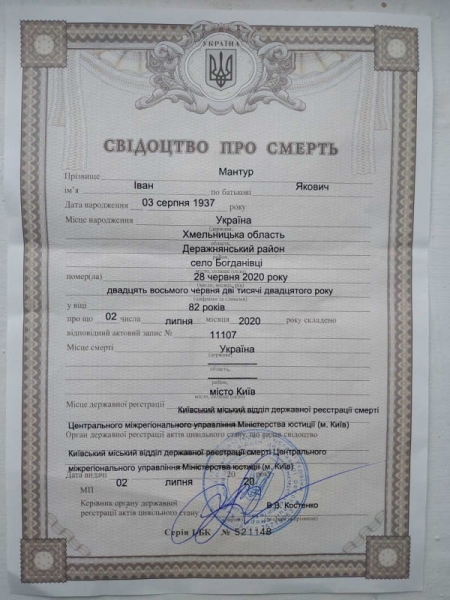 УКРАЇНА
СВІДОЦТВО ПРО СМЕРТЬ
Прізвище Мантур
ім'я Іван по батькові Якович
Дата народження 03 серпня 1937 року
Місце народження Україна
(держава,
Хмельницька область
область,
Деражнянський район
район,
село Богданівці
помер(ла) 28 червня 2020 року
двадцять восьмого червня дві тисячі двадцятого року
(цифрами та словами)
у віці 82 років
про що 02 числа липня місяця 2020 року складено
відповідний актовий запис № 11107
Місце смерті Україна
(держава,
область,
район,
місто Київ
Місце державної реєстрації Київський міський відділ державної реєстрації смерті
Центрального міжрегіонального управління Міністерства юстиції (м. Київ)
Орган державної реєстрації актів цивільного стану, що видав свідоцтво
Київський міський відділ державної реєстрації смерті Центрального
міжрегіонального управління Міністерства юстиції (м. Київ)
Дата видачі 02 липня 2020
МП
Керівник органу державної
реєстрації актів цивільного стану В.В. Костенко
Серія І-БК № 521148